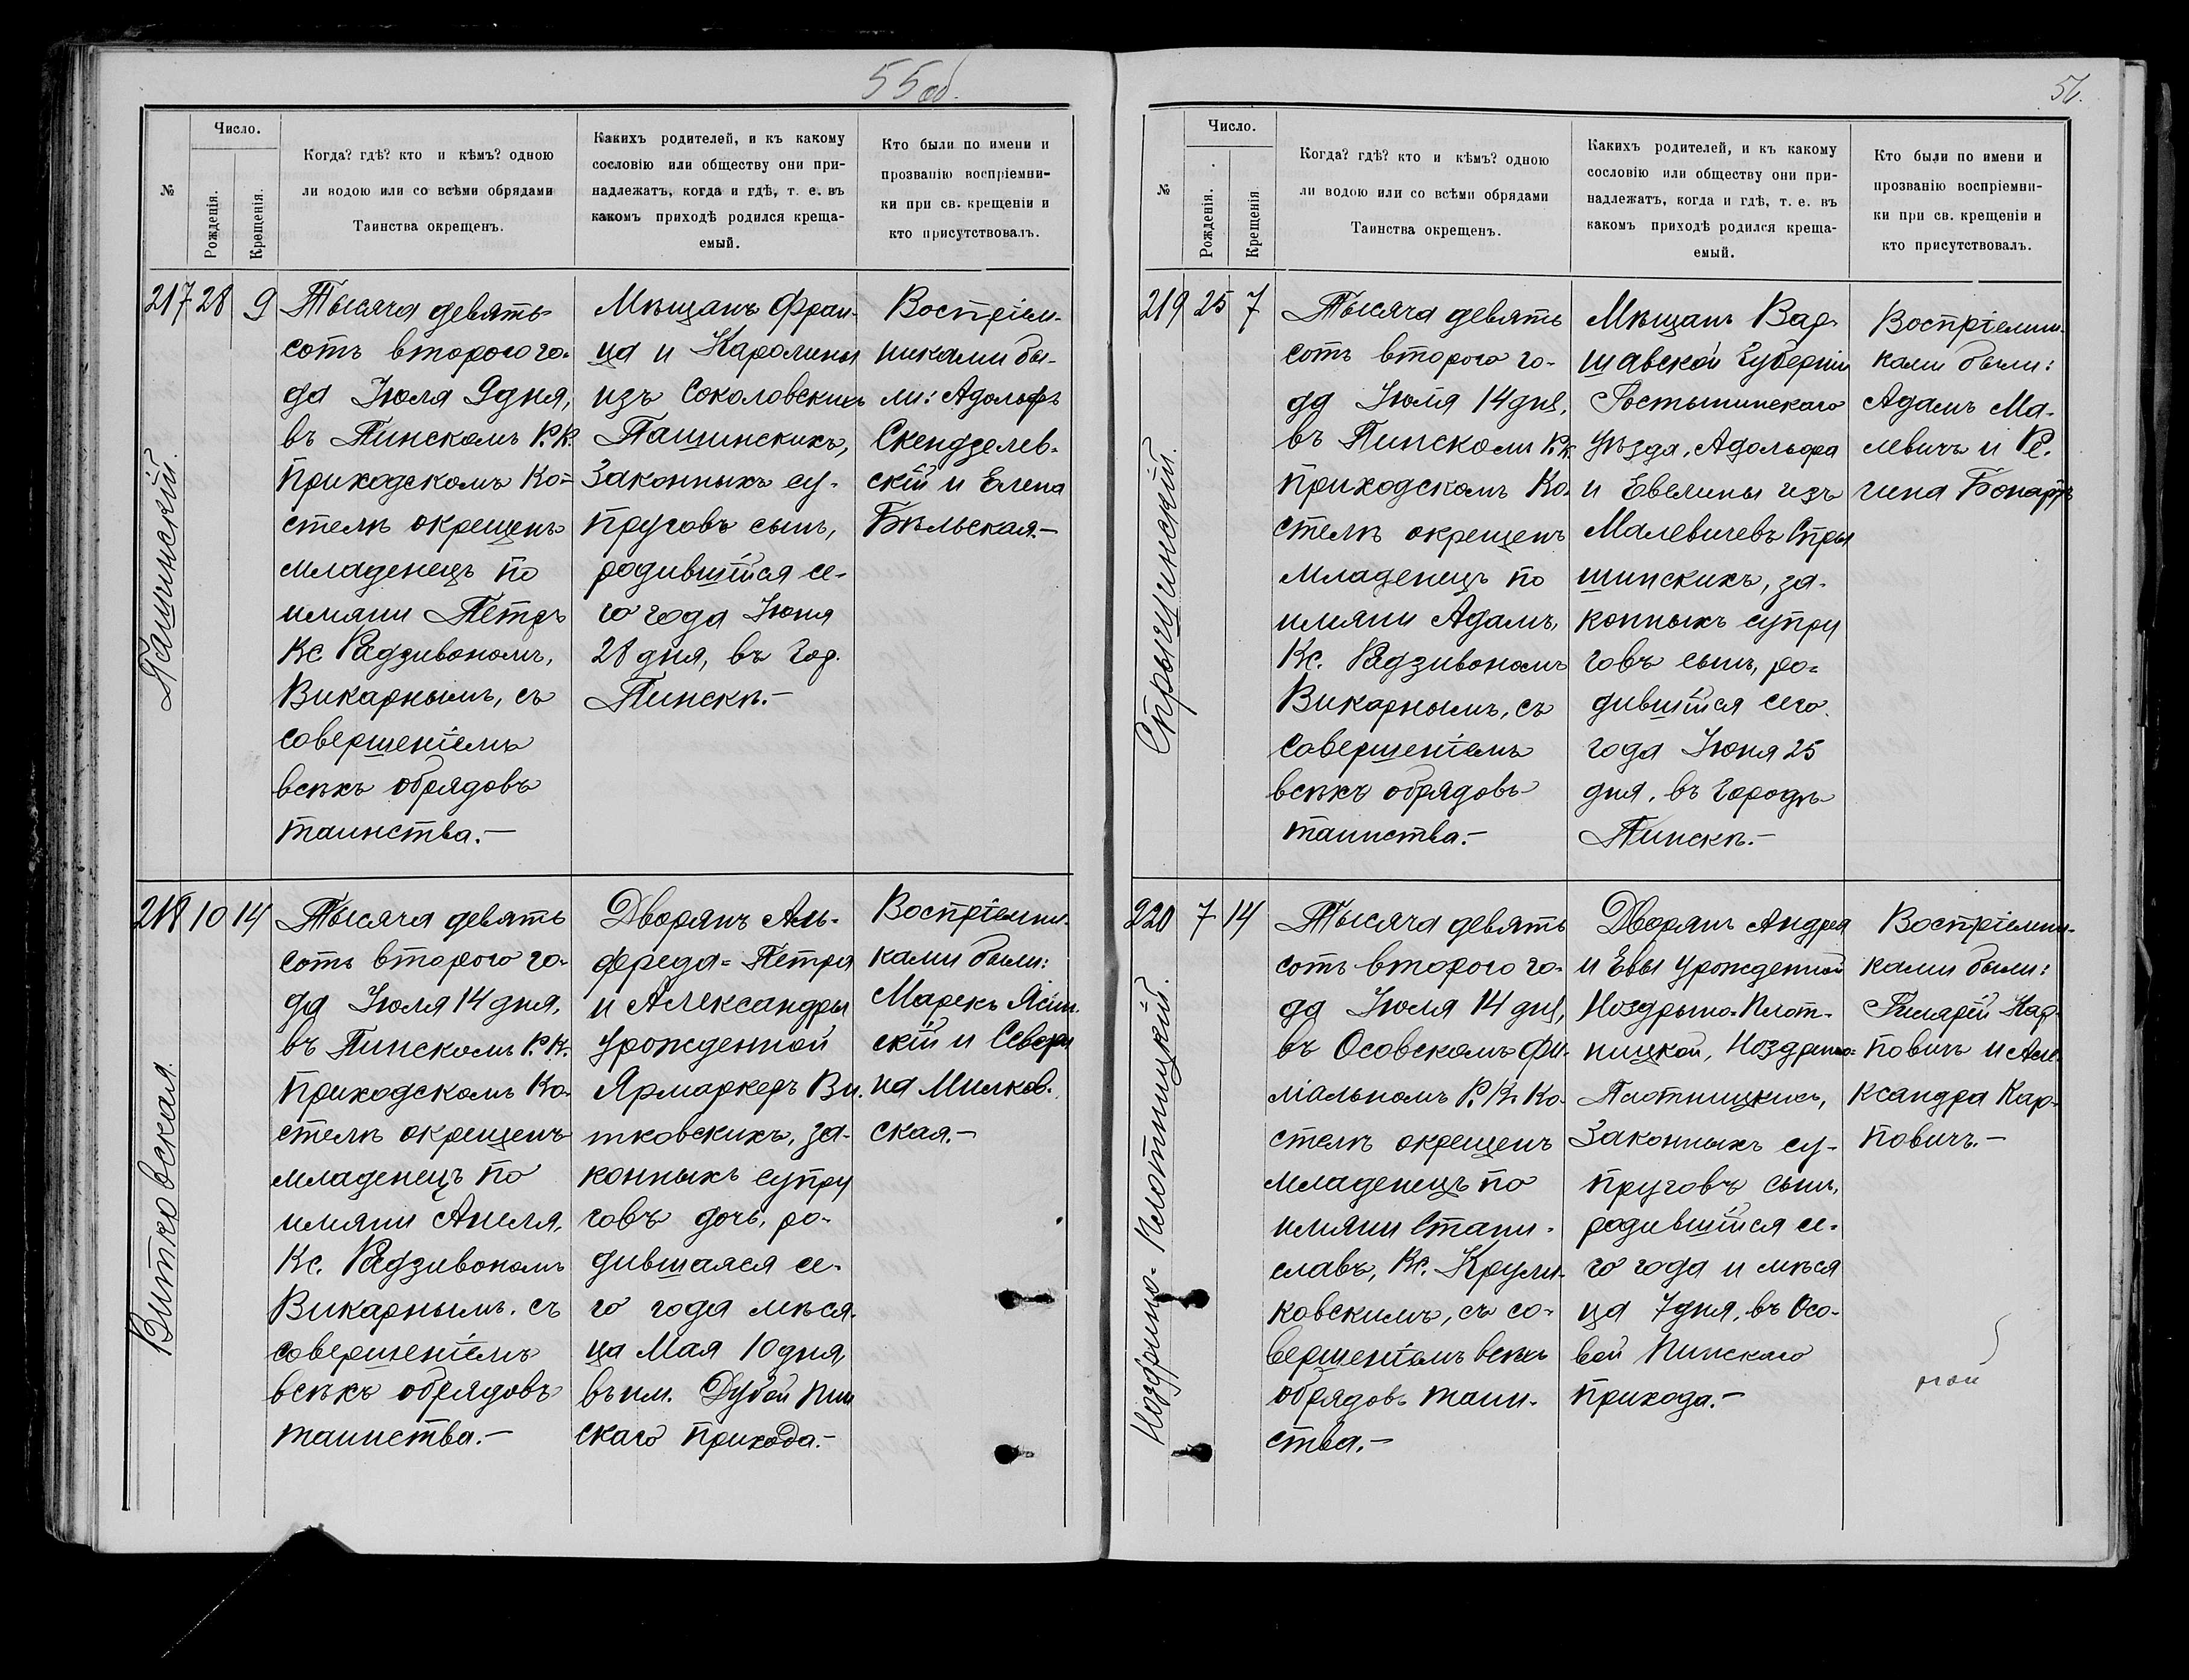 55 об.
№
Число.
Рожденія.
Крещенія.
Когда? гдѣ? кто и кѣмъ? одною
ли водою или со всѣми обрядами
Таинства окрещенъ.
Какихъ родителей, и къ какому
сословію или обществу они при-
надлежатъ, когда и гдѣ, т. е. въ
какомъ приходѣ родился креща-
емый.
Кто были по имени и
прозванію воспріемни-
ки при св. крещеніи и
кто присутствовалъ.
217 28 9
Пашинскій.
Тысяча девять
сотъ второго го-
да Іюля 9 дня,
въ Пинскомъ Р. К.
Приходскомъ Ко-
стелѣ окрещенъ
младенецъ по
имяни Петръ
Кс Радзивономъ,
Викарнымъ, съ
совершеніемъ
всѣхъ обрядовъ
таинства.—
Мѣщанъ Фран-
ца и Каролины
изъ Соколовскихъ
Пашинскихъ,
Законныхъ су-
пруговъ сынъ,
родившійся се-
го года Іюня
28 дня, въ Гор.
Пинскѣ.—
Воспріем-
никами бы-
ли: Адольфъ
Скендзелев-
скій и Елена
Бѣльская.—
218 10 14
Витковская.
Тысяча девять
сотъ второго го-
да Іюля 14 дня,
въ Пинскомъ Р. К.
Приходскомъ Ко-
стелѣ окрещенъ
младенецъ по
имяни Анеля,
Кс. Радзивономъ
Викарнымъ. съ
совершеніемъ
всѣхъ обрядовъ
таинства.—
Дворянъ Аль-
фреда-Петра
и Александры
Урожденной
Ярмаркеръ Ви-
тковскихъ, за-
конныхъ супру
говъ дочь, ро-
дившаяся се-
го года мѣся-
ца Мая 10 дня,
въ им. Дубой Пин
скаго прихода.—
Воспріемни-
ками были:
Марекъ Ясин-
скій и Севери
на Милков-
ская.—
56.
№
Число.
Рожденія.
Крещенія
Когда? гдѣ? кто и кѣмъ? одною
ли водою или со всѣми обрядами
Таинства окрещенъ.
Какихъ родителей, и къ какому
сословію или обществу они при-
надлежатъ, когда и гдѣ, т. е. въ
какомъ приходѣ родился креща-
емый.
Кто были по имени и
прозванію воспріемни-
ки при св. крещеніи и
кто присутствовалъ.
219 25 7
Спрышинскій.
Тысяча девять
сотъ второго го-
да Іюля 14 дня,
въ Пинскомъ Р. К.
Приходскомъ Ко-
стелѣ окрещенъ
младенецъ по
имяни Адамъ,
Кс. Радзивономъ
Викарнымъ, съ
Совершеніемъ
всѣхъ обрядовъ
таинства.—
Мѣщанъ Вар-
шавской Губерніи
Гостынинскаго
уѣзда, Адольфа
и Евелины изъ
Малевичевъ Спры
шинскихъ, за-
конныхъ супру
говъ сынъ, ро-
дившійся сего
года Іюня 25
дня, въ Городѣ
Пинскѣ.—
Воспріемни-
ками были:
Адамъ Ма-
левичъ и Ре-
гина Бонартъ
220 7 14
Ноздрыно-Плотницкій.
Тысяча девять
сотъ второго го-
да Іюля 14 дня,
въ Осовскомъ Фи-
ліальномъ Р. К. Ко-
стелѣ окрещенъ
младенецъ по
имяни Стани-
славъ, Кс. Крули-
ковскимъ, съ со-
вершеніемъ всѣхъ
обрядовъ таин-
ства.—
Дворянъ Андрея
и Евы Урожденной
Ноздрыно-Плот-
ницкой, Ноздрыно-
Плотницкихъ,
Законныхъ су-
пруговъ сынъ,
родившійся се-
го года и мѣся
ца 7 дня, въ Осо-
вой Пинскаго
прихода.—
Воспріемни-
ками были:
Гиларій Кар-
повичъ и Але-
ксандра Кар-
повичъ.—